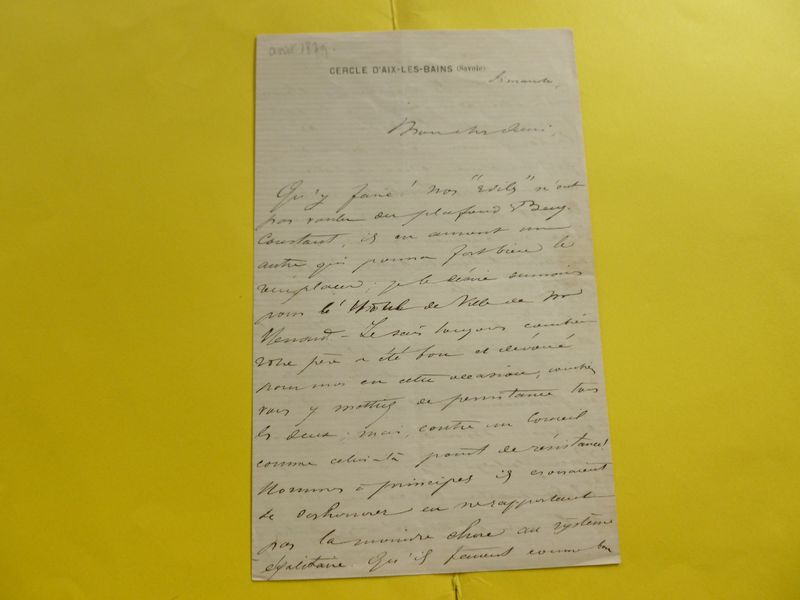 août 1879.
CERCLE D'AIX-LES-BAINS (Savoie)
Dimanche,
Mon cher ami,
Qu'y faire! Nos "Edils" n'ont
pas voulu du plafond Benj.
Constant, ils en aiment un
autre qui pourra fort bien le
remplacer; je le désire au moins
pour l'Hôtel de Ville de
Je sais toujours combien
votre père a été bon et dévoué
pour moi en cette occasion, combien
vous y mettiez de persistance tous
les deux; mais, contre un Conseil
comme celui-là point de résistance!
Hommes à principes ils croiraient
se déshonorer en ne rapportant
pas la moindre chose au système
égalitaire qu'ils tiennent comme bon